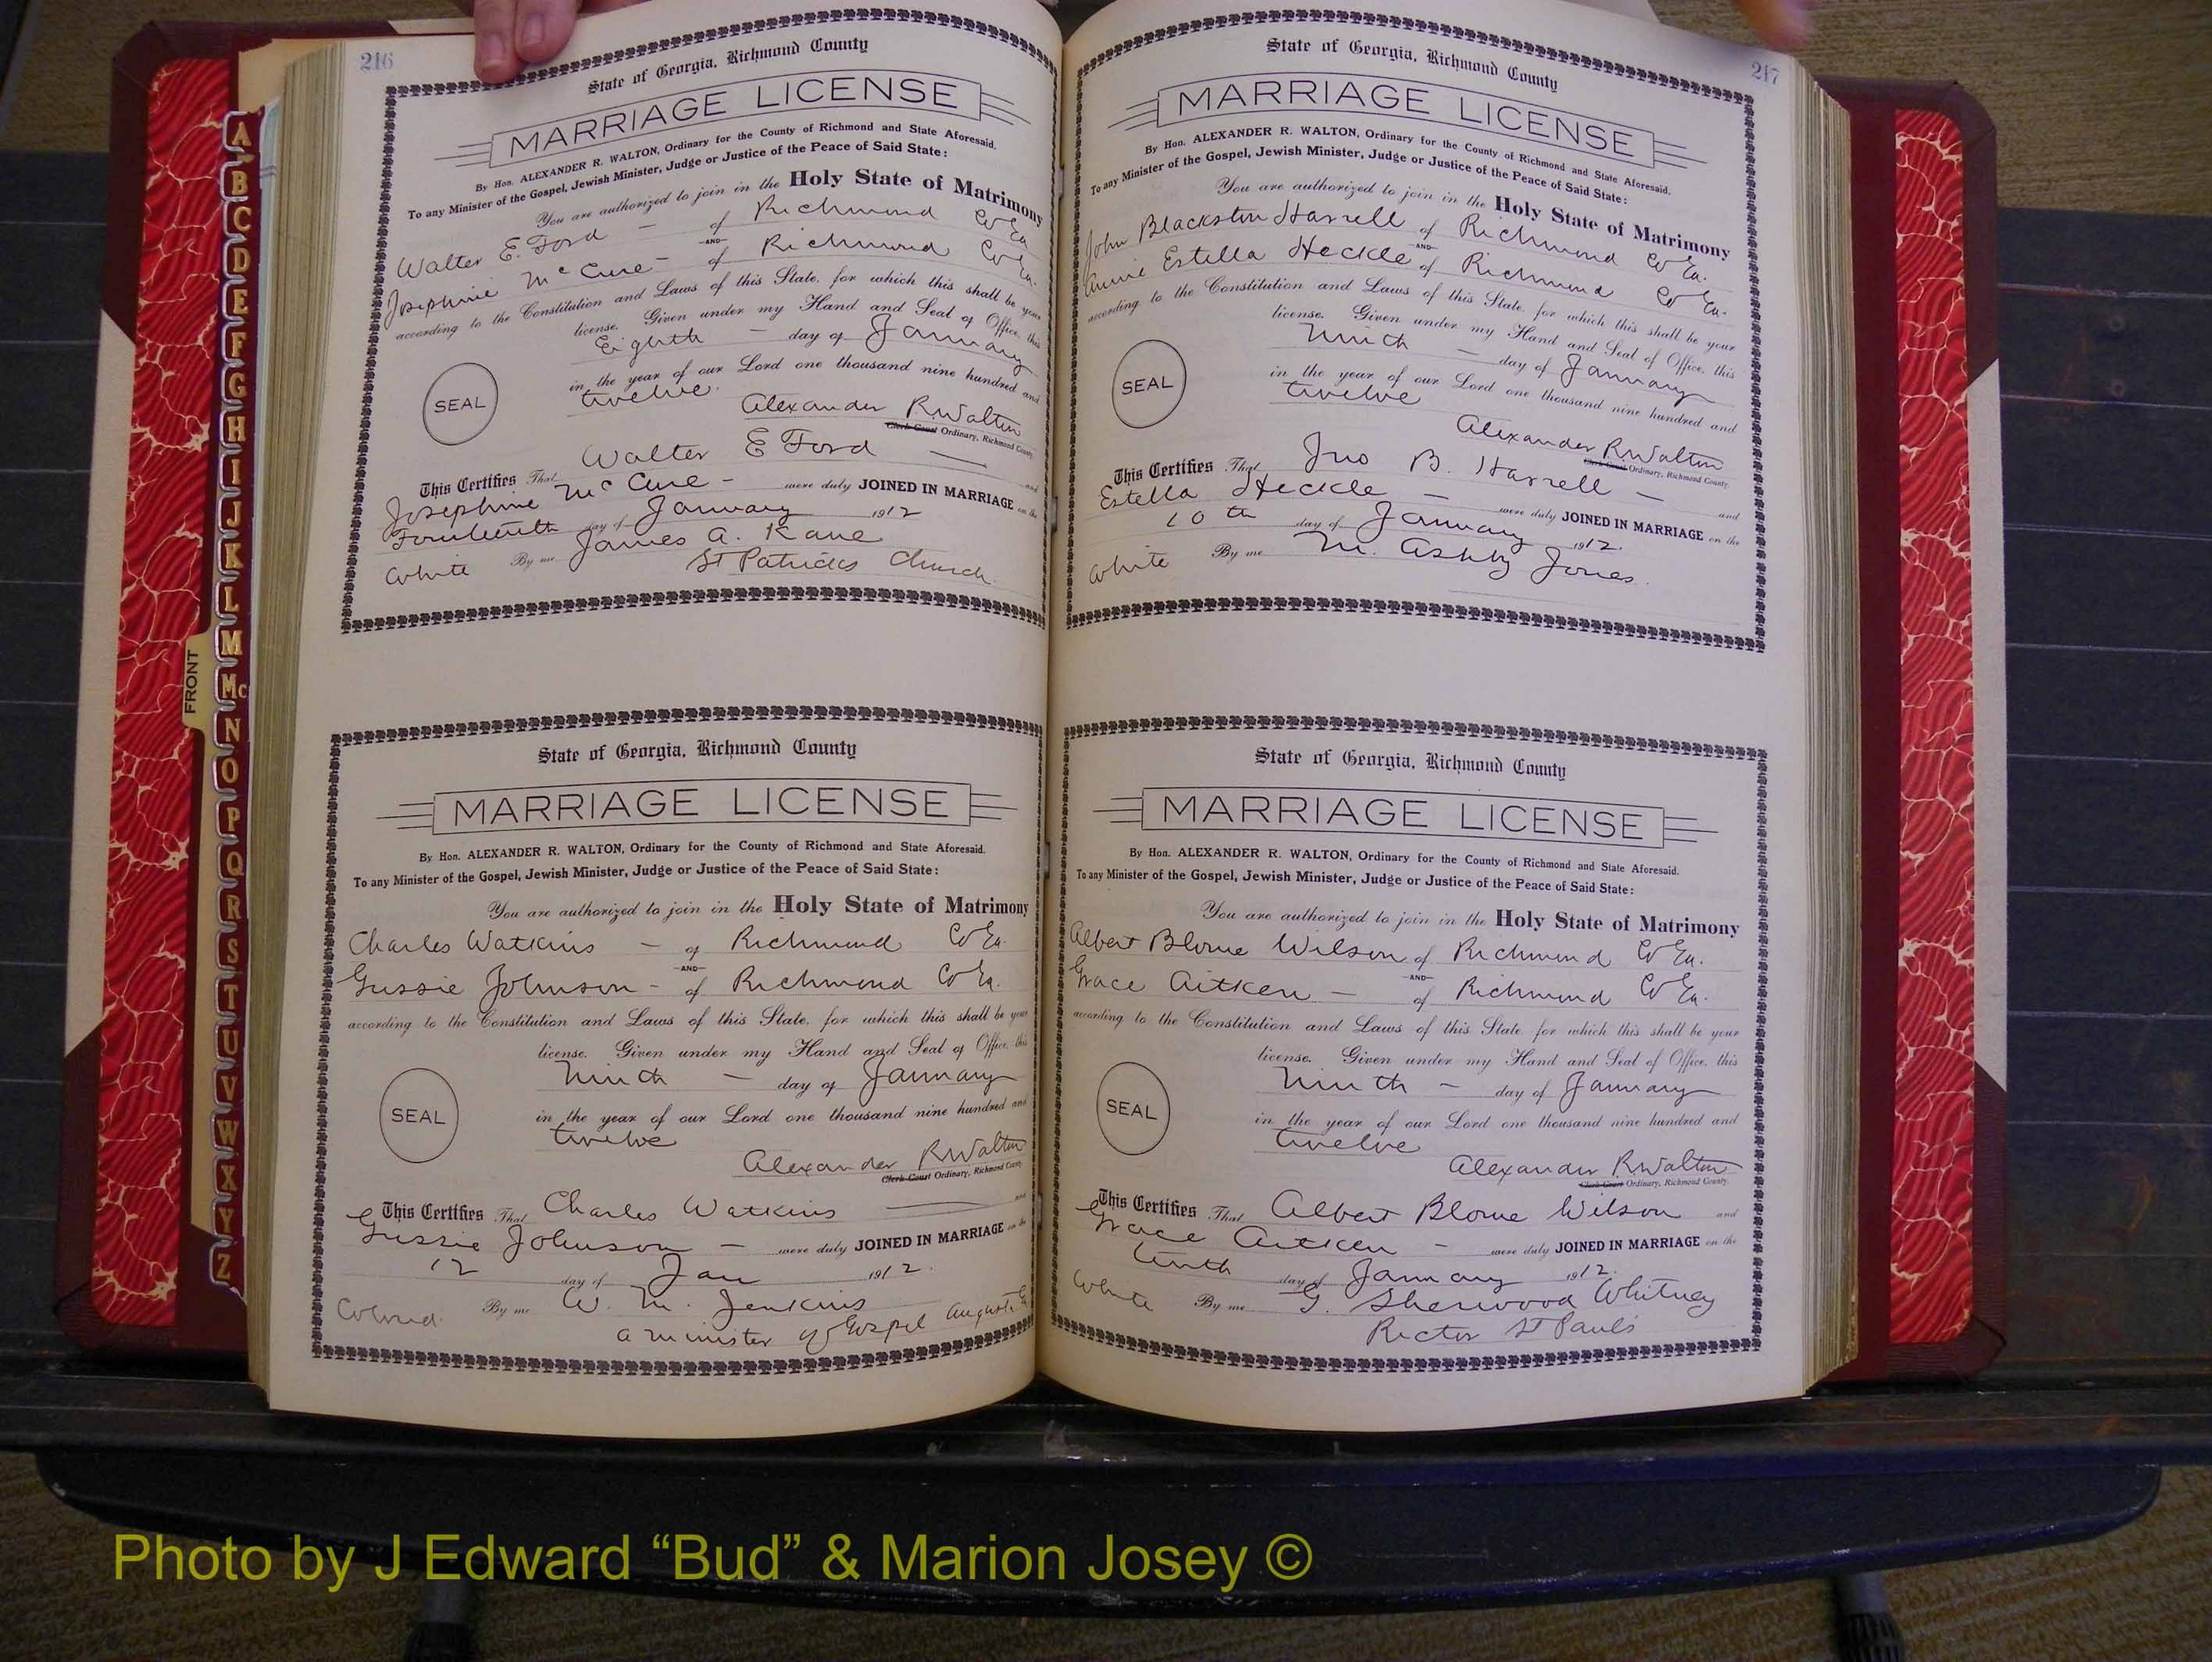 216
State of Georgia, Richmond County
MARRIAGE LICENSE
By Hon. ALEXANDER R. WALTON, Ordinary for the County of Richmond and State Aforesaid.
To any Minister of the Gospel, Jewish Minister, Judge or Justice of the Peace of Said State:
You are authorized to join in the Holy State of Matrimony
Walter E. Ford — of Richmond Co Ga
-AND-
Josephine McCure - of Richmond Co Ga.
according to the Constitution and Laws of this State, for which this shall be your
license. Given under my Hand and Seal of Office, this
Eighth — day of January
in the year of our Lord one thousand nine hundred and
twelve.
SEAL
Alexander R Walton
Clerk Court Ordinary, Richmond County.
This Certifies That Walter E Ford — and
Josephine McCure - were duly JOINED IN MARRIAGE on the
Fourteenth day of January 1912
White By me James A. Kane
St Patricks Church.
State of Georgia, Richmond County
MARRIAGE LICENSE
By Hon. ALEXANDER R. WALTON, Ordinary for the County of Richmond and State Aforesaid.
To any Minister of the Gospel, Jewish Minister, Judge or Justice of the Peace of Said State:
You are authorized to join in the Holy State of Matrimony
Charles Watkins — of Richmond Co Ga.
-AND-
Gussie Johnson - of Richmond Co Ga.
according to the Constitution and Laws of this State, for which this shall be your
license. Given under my Hand and Seal of Office, this
Ninth — day of January
in the year of our Lord one thousand nine hundred and
twelve
SEAL
Alexander R Walton
Clerk Court Ordinary, Richmond County
This Certifies That Charles Watkins — and
Gussie Johnson — were duly JOINED IN MARRIAGE on the
12 day of Jan 1912.
Colored. By me W. M. Jenkins
a minister of Gospel Augusta Ga
217
State of Georgia, Richmond County
MARRIAGE LICENSE
By Hon. ALEXANDER R. WALTON, Ordinary for the County of Richmond and State Aforesaid.
To any Minister of the Gospel, Jewish Minister, Judge or Justice of the Peace of Said State:
You are authorized to join in the Holy State of Matrimony
John Blackston Harrell of Richmond Co Ga.
-AND-
Annie Estella Heckle of Richmond Co Ga.
according to the Constitution and Laws of this State, for which this shall be your
license. Given under my Hand and Seal of Office, this
Ninth — day of January
in the year of our Lord one thousand nine hundred and
twelve
SEAL
Alexander R Walton
Clerk Court Ordinary, Richmond County.
This Certifies That Jno B. Harrell — and
Estella Heckle — were duly JOINED IN MARRIAGE on the
10th day of January 1912.
White By me M. Ashby Jones.
State of Georgia, Richmond County
MARRIAGE LICENSE
By Hon. ALEXANDER R. WALTON, Ordinary for the County of Richmond and State Aforesaid.
To any Minister of the Gospel, Jewish Minister, Judge or Justice of the Peace of Said State:
You are authorized to join in the Holy State of Matrimony
Albert Blome Wilson of Richmond Co Ga.
-AND-
Grace Aitken — of Richmond Co Ga.
according to the Constitution and Laws of this State, for which this shall be your
license. Given under my Hand and Seal of Office, this
Ninth - day of January
in the year of our Lord one thousand nine hundred and
twelve
SEAL
Alexander R Walton
Clerk Court Ordinary, Richmond County.
This Certifies That Albert Blome Wilson and
Grace Aitken - were duly JOINED IN MARRIAGE on the
tenth day of January 1912.
White By me G. Sherwood Whitney
Rector St Pauls
FRONT
A
B
C
D
E
F
G
H
I
J
K
L
M
Mc
N
O
P
Q
R
S
T
U
V
W
X
Y
Z
Photo by J Edward “Bud” & Marion Josey ©